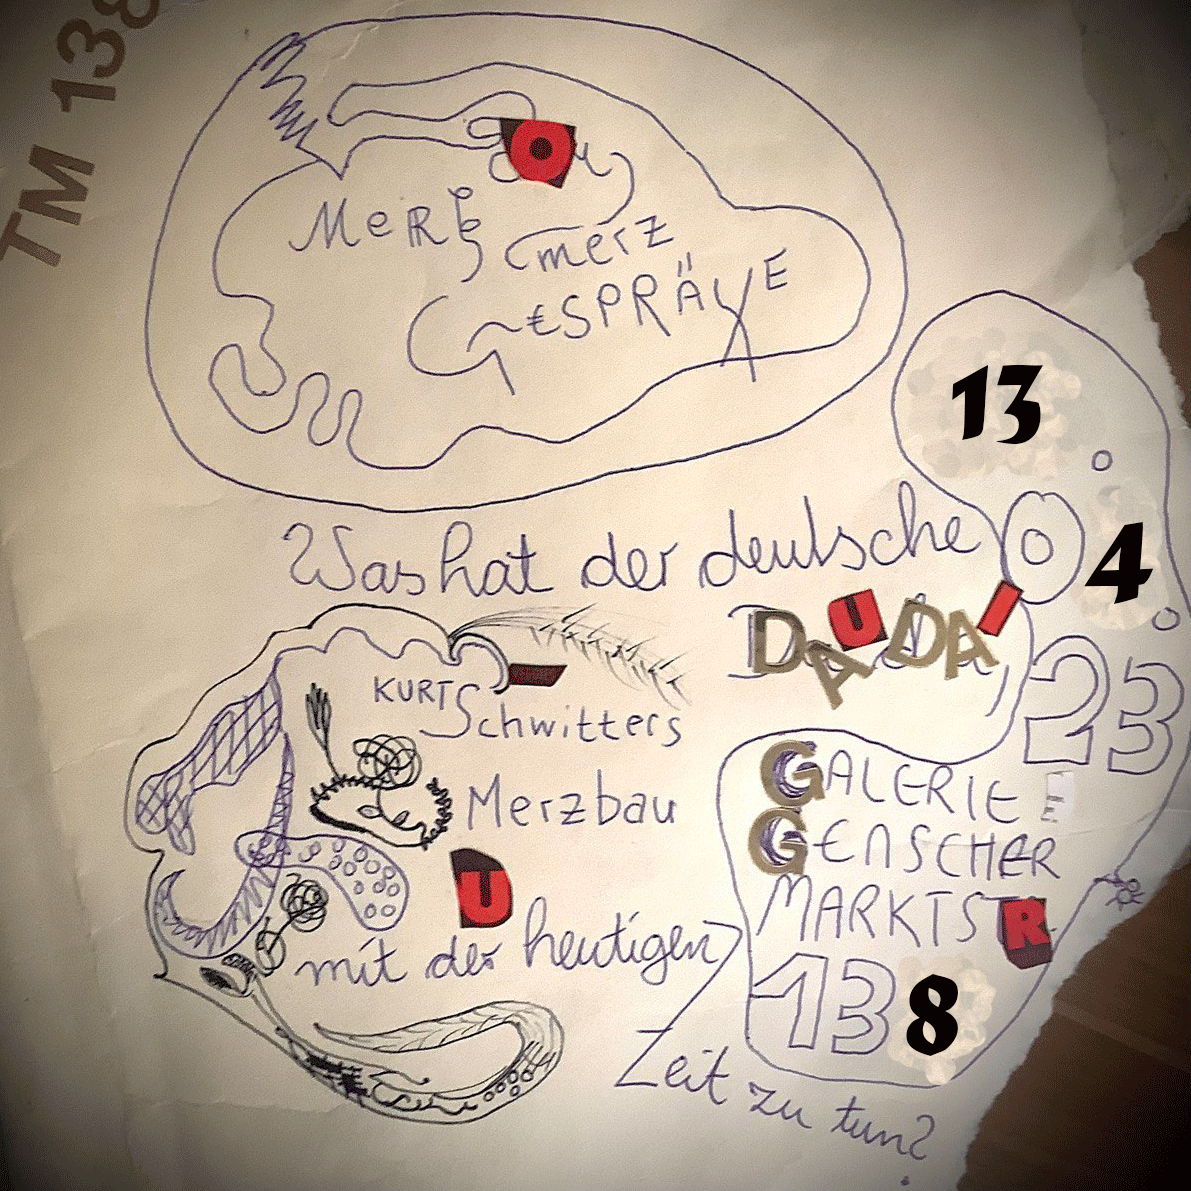 TM 138
MERZ
merz
GESPRÄXE
13
Was hat der deutsche
4
DAUDAI
23
KURT
Schwitters
Merzbau
GALERIE
GENSCHER
MARKTSTR
138
U
mit der heutigen
Zeit zu tun?